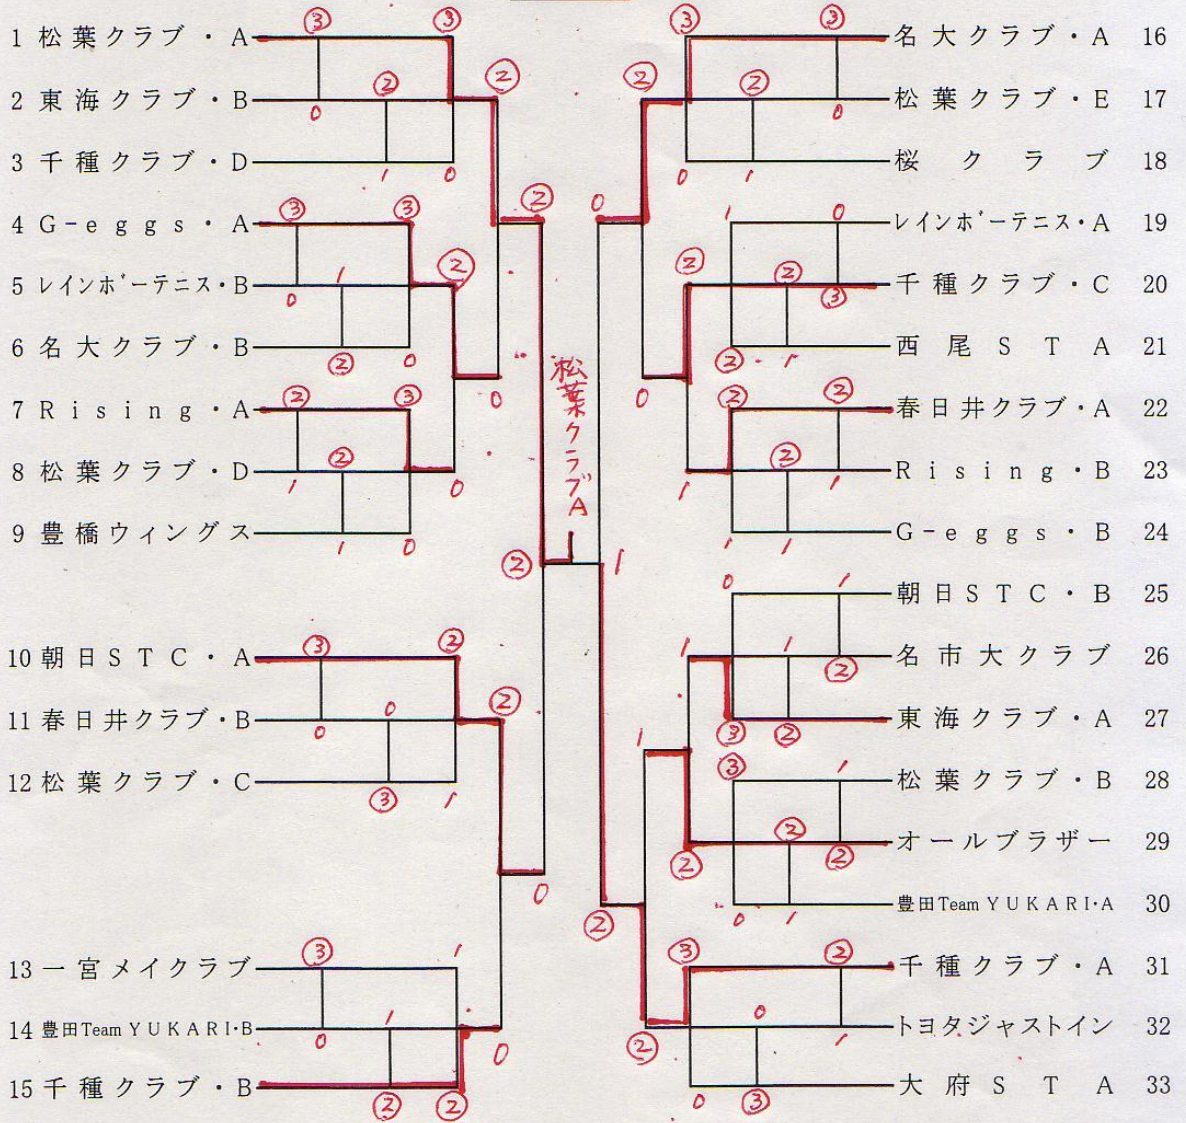 1 松葉クラブ・A
2 東海クラブ・B
3 千種クラブ・D
4 G-eggs・A
5 レインボーテニス・B
6 名大クラブ・B
7 Rising・A
8 松葉クラブ・D
9 豊橋ウィングス
10 朝日STC・A
11 春日井クラブ・B
12 松葉クラブ・C
13 一宮メイクラブ
14 豊田Team YUKARI・B
15 千種クラブ・B
松葉クラブA
名大クラブ・A 16
松葉クラブ・E 17
桜クラブ 18
レインボーテニス・A 19
千種クラブ・C 20
西尾STA 21
春日井クラブ・A 22
Rising・B 23
G-eggs・B 24
朝日STC・B 25
名市大クラブ 26
東海クラブ・A 27
松葉クラブ・B 28
オールブラザー 29
豊田Team YUKARI・A 30
千種クラブ・A 31
トヨタジャストイン 32
大府STA 33